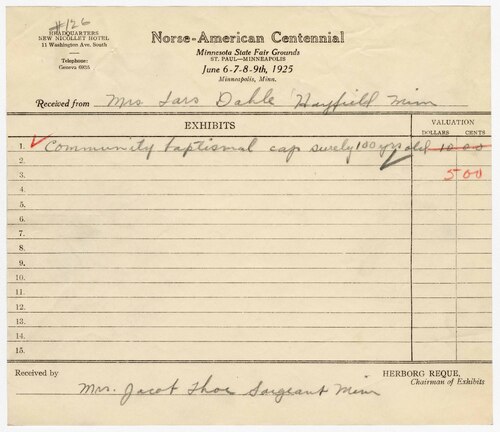 #126
HEADQUARTERS
NEW NICOLLET HOTEL
11 Washington Ave. South
Telephone:
Geneva 6935
Norse-American Centennial
Minnesota State Fair Grounds
ST. PAUL—MINNEAPOLIS
June 6-7-8-9th, 1925
Minneapolis, Minn.
Received from Mrs Lars Dahle Hayfield Minn
EXHIBITS
VALUATION
DOLLARS CENTS
1. Community baptismal cap surely 100 yrs old 10 00
2.
3. 5 00
4.
5.
6.
7.
8.
9.
10.
11.
12.
13.
14.
15.
Received by
Mrs. Jacob Thoe Sargeant Minn
HERBORG REQUE,
Chairman of Exhibits